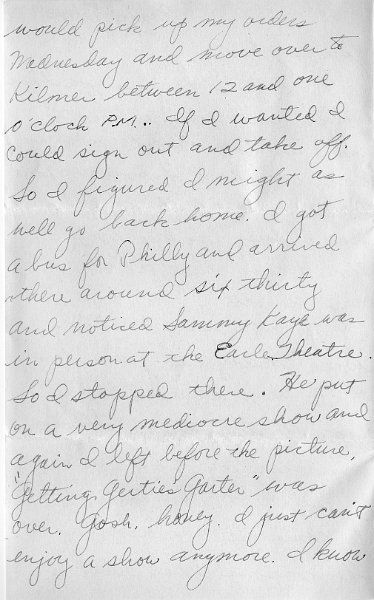 would pick up my orders
Wednesday and move over to
Kilmer between 12 and one
o'clock P.M.. If I wanted I
could sign out and take off.
So I figured I might as
well go back home. I got
a bus for Philly and arrived
there around six thirty
and noticed Sammy Kaye was
in person at the Earle Theatre.
So I stopped there. He put
on a very mediocre show and
again I left before the picture,
"Getting Gertie's Garter" was
over. Gosh, honey. I just can't
enjoy a show anymore. I know